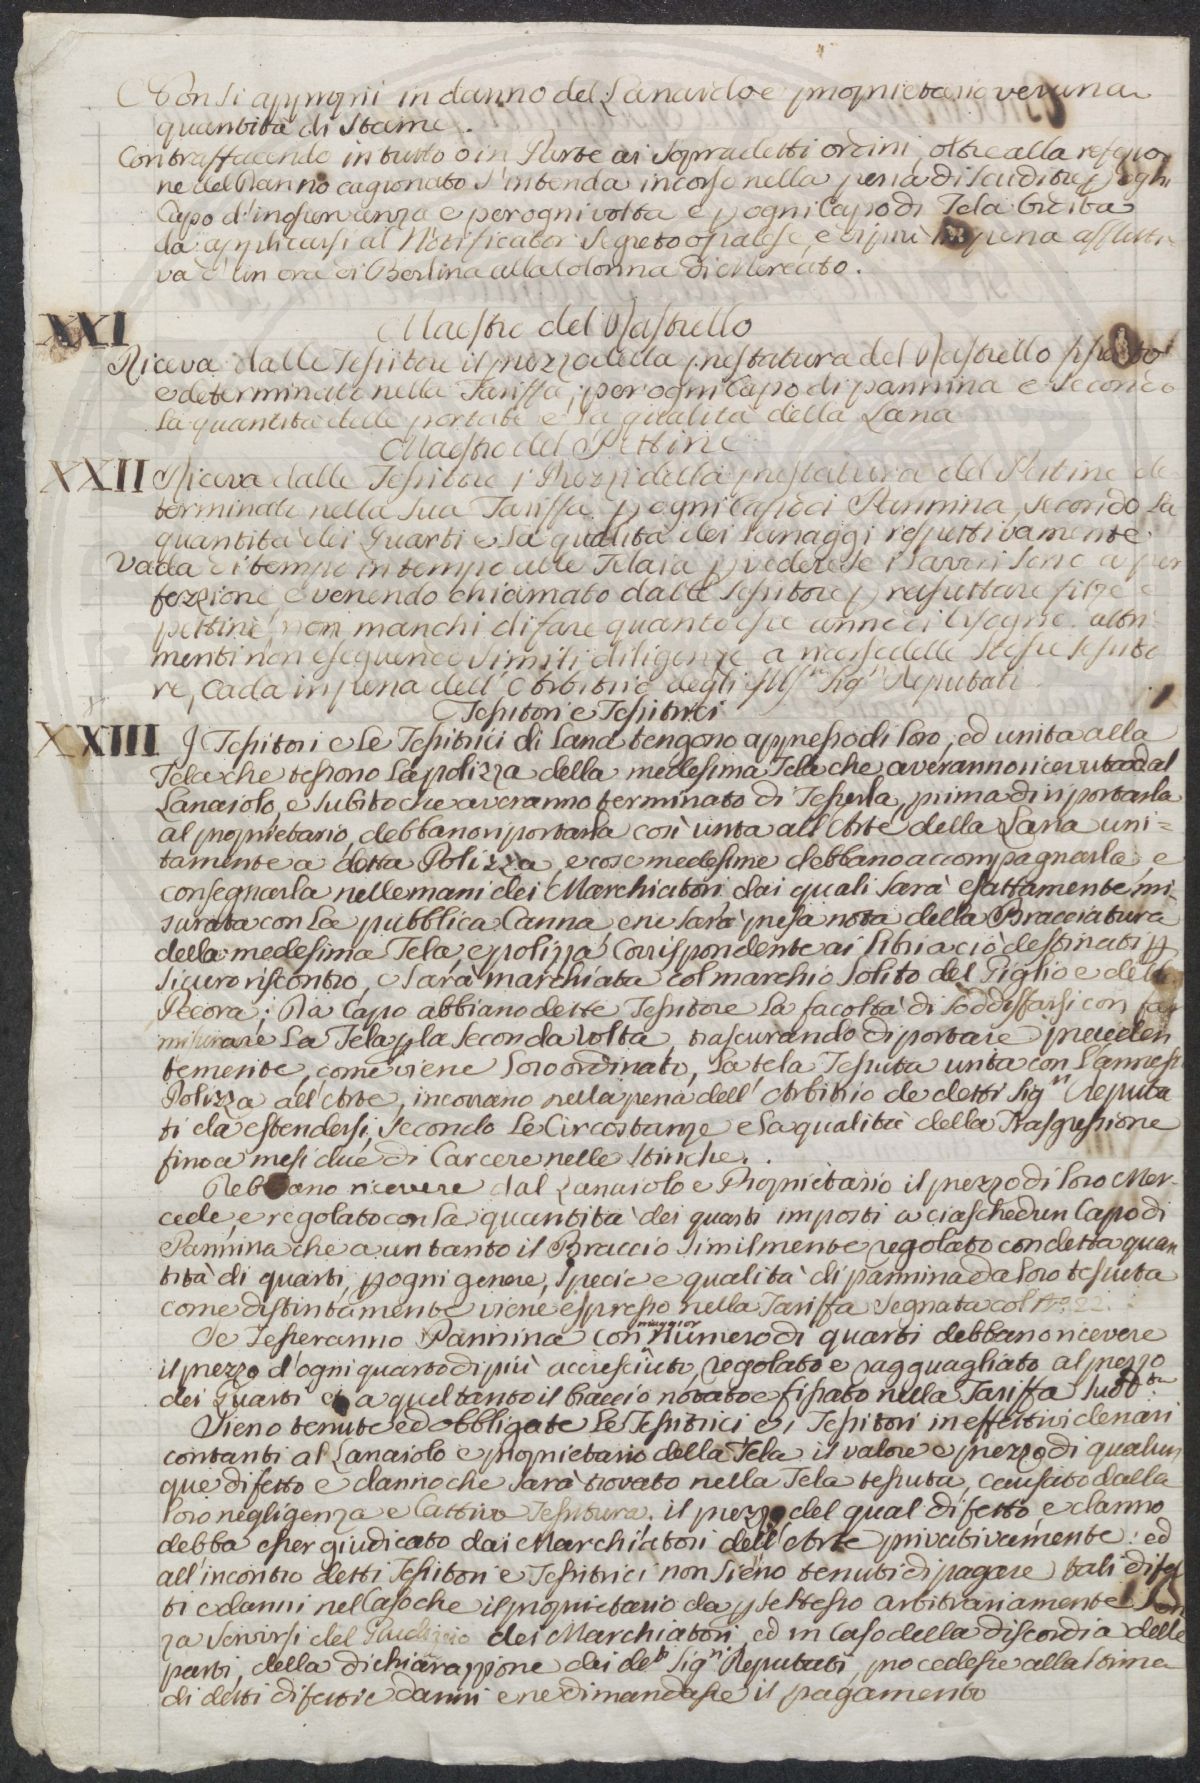 Non si appropri in danno del Lanaiolo e proprietario veruna
quantità di stame.
Contraffacendo in tutto ò in Parte ai sopradetti ordini, oltre alla refezio
ne del Danno cagionato s'intenda incorso nella pena di scudi tre p ogni
Capo d'inosservanza e per ogni volta e p ogni Capo di Tela Ordita
da applicarsi al Notificator segreto o palese, e di più in pena afflitti
va d'un ora di Berlina alla Colonna di Mercato.
XXI Maestro del Rastrello
Riceva dalle Tessitore il prezzo della prestatura del Rastrello
e determinato nella Tariffa, per ogni Capo di pannina e secondo
la quantità delle portate e la qualità della Lana
Maestro del Pettine
XXII Riceva dalle Tessitore i Prezzi della prestatura del Pettine de
terminati nella sua Tariffa p ogni Capo di Pannina, secondo la
quantità dei Quarti e la qualità dei Lanaggi respettivamente
Vada di tempo in tempo alle Telaia p vedere se i lavori sono a per
fezzione, e venendo chiamato dalle Tessitore p rassettare filze e
pettini, non manchi di fare quanto sia di bisogno altri
menti non eseguendo simili diligenze a delle stesse Tessito
re, cada in pena dell'Arbitrio degli Sig.ri Deputati
Tessitori e Tessitrici
XXIII I Tessitori e le Tessitrici di Lana tengono appresso di loro, ed unita alla
Tela che tessono la polizza della medesima Tela che averanno ricevuta dal
Lanaiolo, e subito che averanno terminato di Tesserla, prima di riportarla
al proprietario, debbano riportarla così unta all'Arte della Lana uni=
tamente a detta Polizza, e cose medesime debbano accompagnarla, e
consegnarla nelle mani dei Marchiatori, dai quali sarà esattamente mi-
surata con la pubblica Canna e ne sarà presa nota della Bracciatura
della medesima Tela, e polizza corrispondente ai libri a ciò destinati p
sicuro riscontro, e sarà marchiata col marchio solito del Giglio e della
Pecora; Da Capo abbiano dette Tessitore la facoltà di soddisfarsi con far
misurare la Tela p la seconda volta, trascurando di portare preceden
temente, come viene loro ordinato, la tela Tessuta unta con l'annessa
Polizza all'Arte, incorrano nella pena dell'Arbitrio de detti Sig.ri Deputa
ti da estendersi, secondo le Circostanze e la qualità della Trasgressione
fino a mesi due di Carcere nelle Stinche.
Debbano ricevere dal Lanaiolo e Proprietario il prezzo di loro Mer-
cede, e regolato con la quantità dei quarti imposti a ciaschedun Capo di
Pannina che a un tanto il Braccio similmente regolato con detta quan
tità di quarti, p ogni genere, specie e qualità di pannina da loro tessuta
come distintamente viene espresso nella Tariffa segnata col N.° 22.
Se Tesseranno Pannina con maggior numero di quarti debbano ricevere
il prezzo d'ogni quarto di più accresciuto, regolato e ragguagliato al prezzo
dei Quarti e a quel tanto il braccio notato e fissato nella Tariffa sudd.ta
Sieno tenute ed obbligate le Tessitrici e i Tessitori in effettivi denari
contanti al Lanaiolo e proprietario della Tela il valore e prezzo di qualun
que difetto e danno che sarà trovato nella Tela tessuta, causato dalla
loro negligenza e Cattiva Tessitura, il prezzo del qual difetto, e danno
debba esser giudicato dai Marchiatori dell'Arte privativamente: ed
all'incontro detti Tessitori e Tessitrici non sieno tenuti di pagare tali difet
ti e danni nel Caso che il proprietario da p se stesso arbitrariamente sen
za servirsi del Giudizio dei Marchiatori, ed in Caso della discordia delle
parti, della dichiarazzione dei de.ti Sig.ri Deputati, procedesse alla stima
di detti difetti e danni e ne dimandasse il pagamento